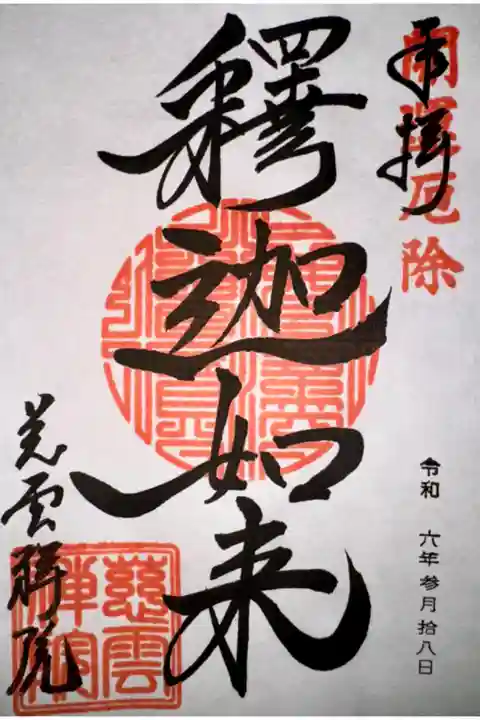 奉拝
開運厄除
令和 六年参月拾八日
釋迦如来
慈雲禅院
慈雲
禅院